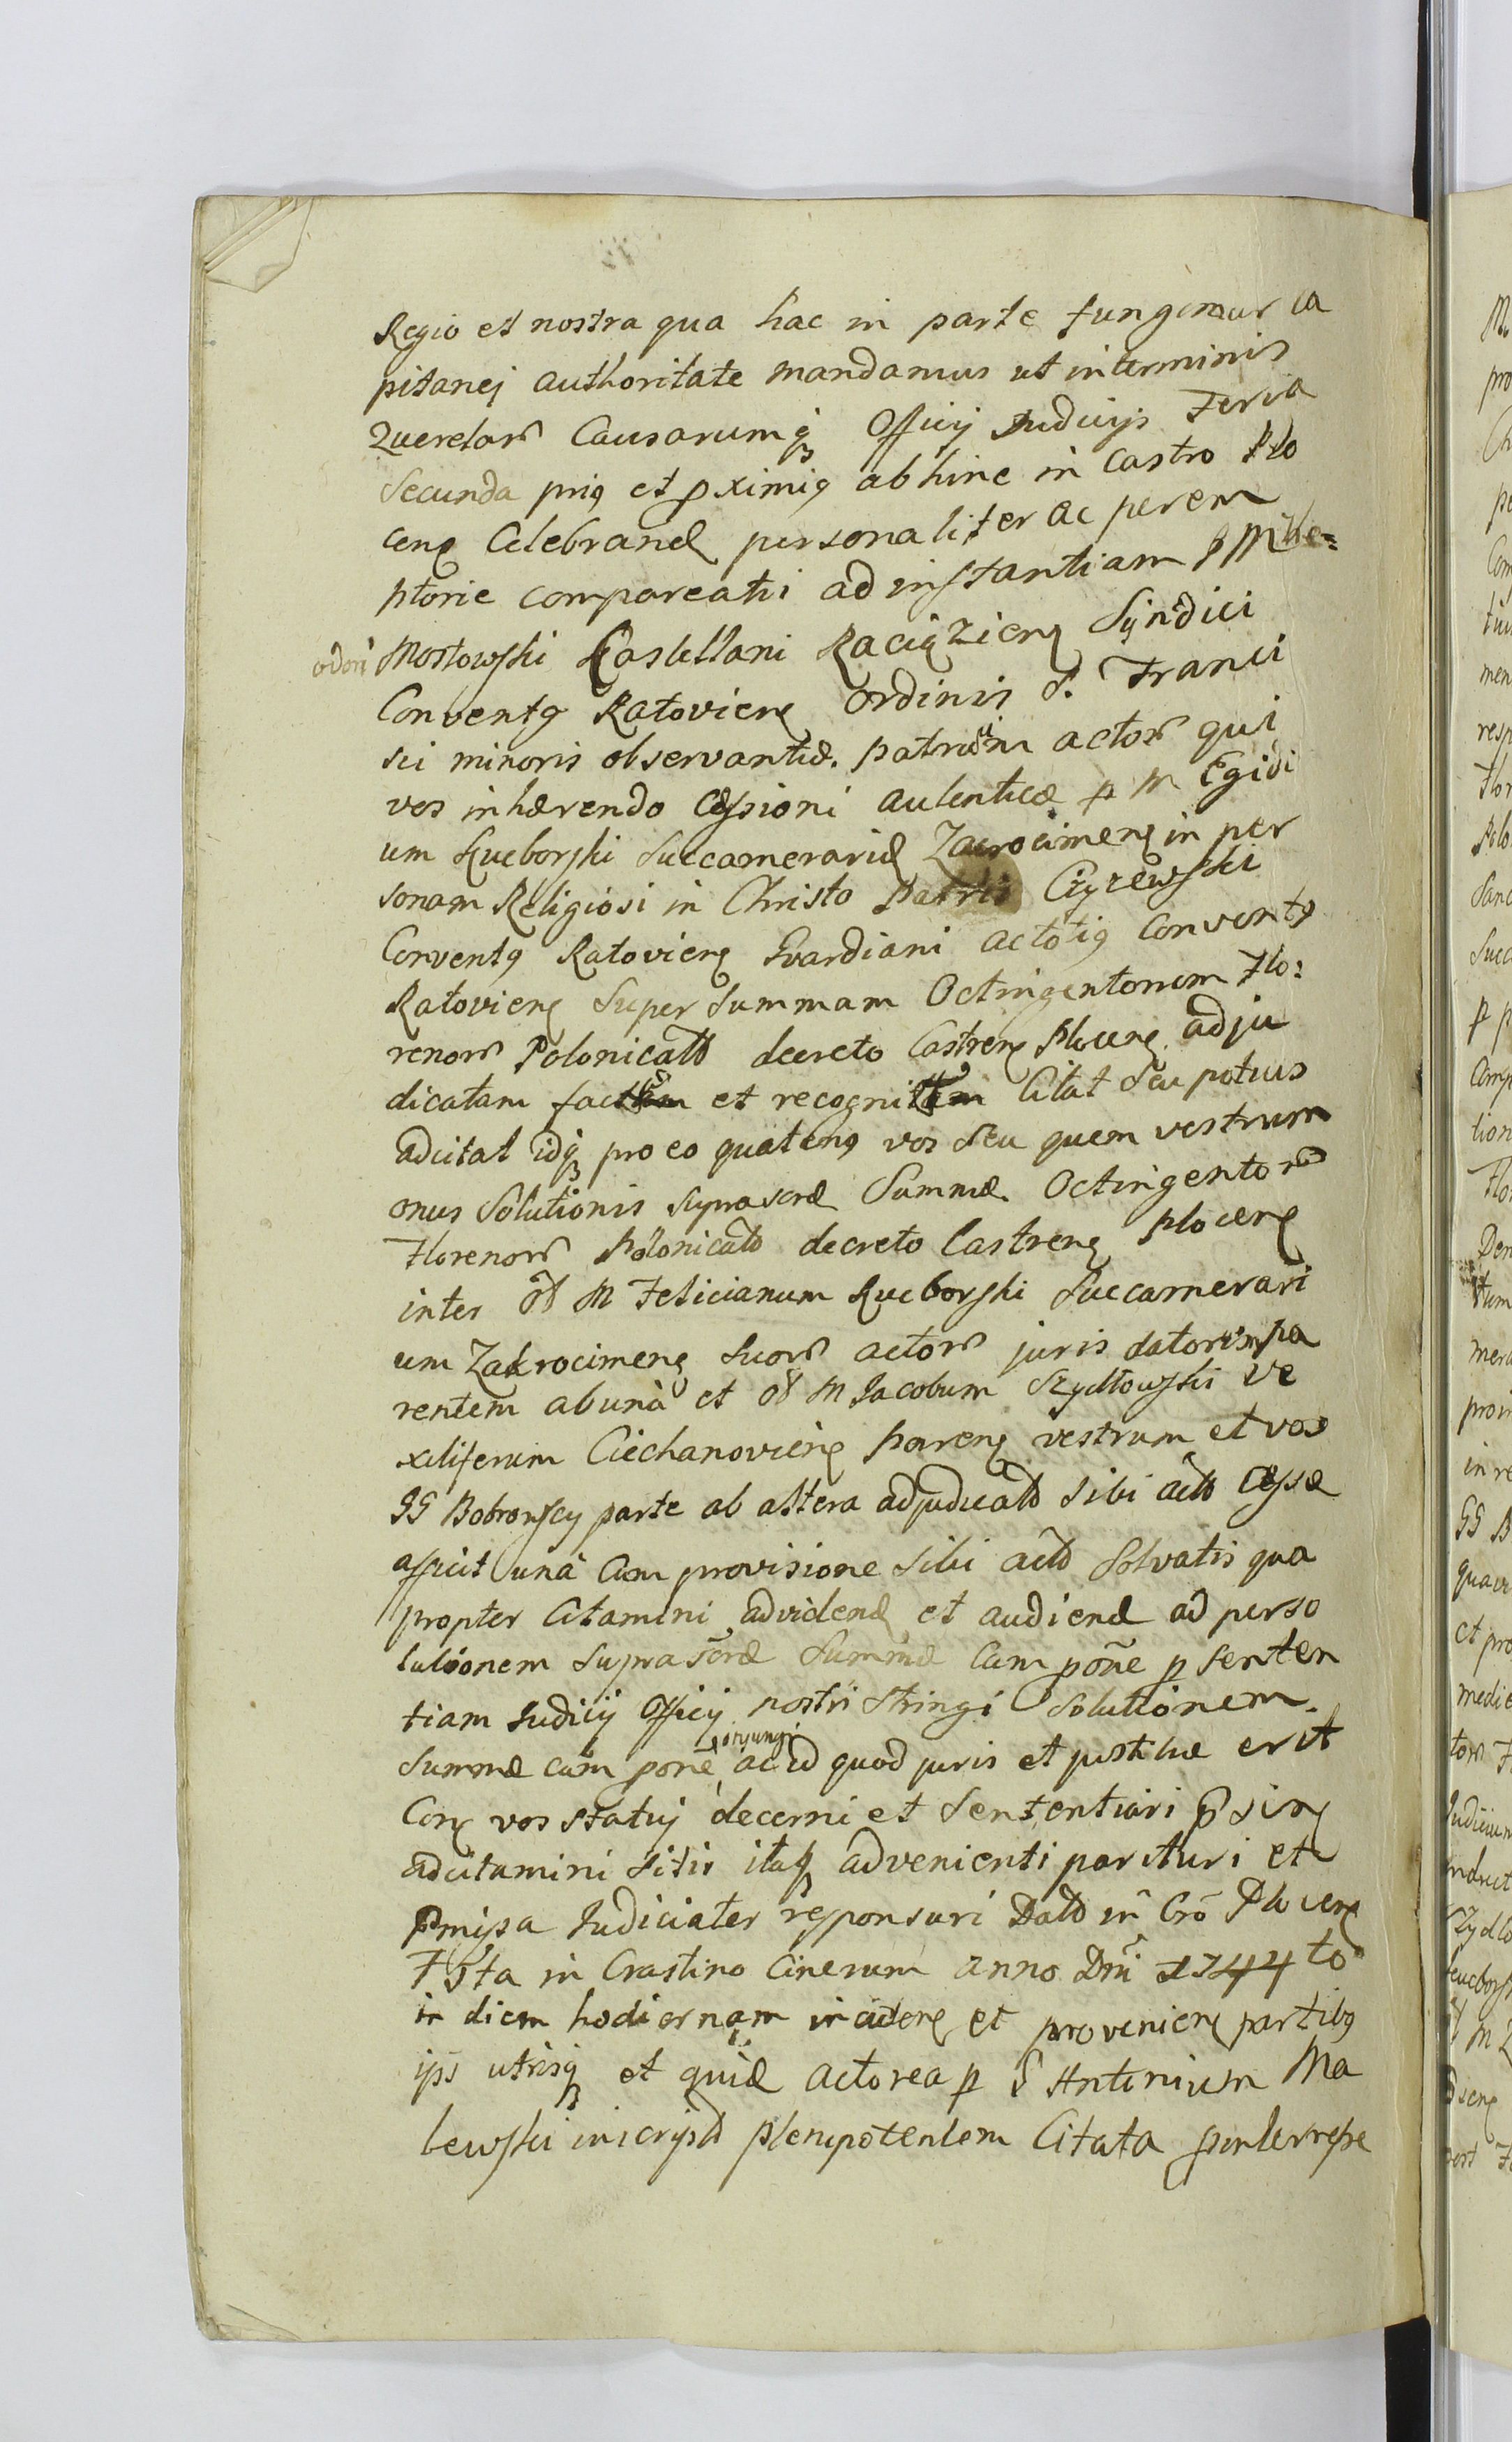 Regio et nostra qua hac in parte fungimur Ca
pitanej authoritate mandamus ut in terminis
Querelarũ Causarumq₃ Officij Judicijs Feria
Secunda priɋ et pximiɋ abhinc in Castro Plo
cenɋ Celebrand personaliter ac perem
ptorie compareatis ad instantiam G M The=
odori Mostowski Castellani Raciązienɋ Syndici
Conventɋ Ratovienɋ Ordinis S. Franci
sci minoris observantiæ. patrum actorũ qui
vos inhærendo Cessioni autenticæ p M Egidi
um Kucborski Succamerarid Zacrocimenɋ in per
sonam Religiosi in Christo Patris Czyzewski
Conventɋ Ratovienɋ Gvardiani actotiɋ Conventɋ
Ratovienɋ Super Summam Octingentorum Flo:
renorũ Polonicalɫ decreto Castrenɋ Plocenɋ adju
dicatam factæ et recognitæ Citat Seu potius
adcitat idq₃ pro eo quatenɋ vos Seu quem vestrum
onus Solutionis suprascræ Summæ Octingentorũ
Florenorũ Polonicalɫ decreto Castrenɋ Plocenɋ
inter Oɫ M Felicianum Kucborski Succamerari
um Zakrocimenɋ Suorũ actorũ juris datorum pa
rentem ab una et Oɫ M Jacobum Szydłowski Ve
xiliferum Ciechanovienɋ Parenɋ vestrum et vos
GG Bobrowscy parte ab altera adjudicatɫ Sibi actɫ Cessæ
afficit una Cum provisione Sibi actɫ Solvatis qua
propter Citamini ad videnɫ et audienɫ ad perso
lutionem Suprascræ Summæ Cum pone p Senten
tiam Judicij Officij nostri Stringi Solutionem.
Summæ cum pone conjungi ac id quod juris et justitiæ erit
Conɋ vos statuj decerni et Sententiari p̃sinɋ
adcitamini Sitis itaq₃ advenienti parituri et
p̃missa Judicialiter responsuri Datɫ in Crõ Plocenɋ
F 5ta in Crastino Cinerum anno Dni 1744to
in diem hodiernam incidenɋ et provenienɋ partibɋ
ipsis utrisq₃ et quid actorea p G Antonium Ma
lewski inscriptɫ plenipotentem Citata